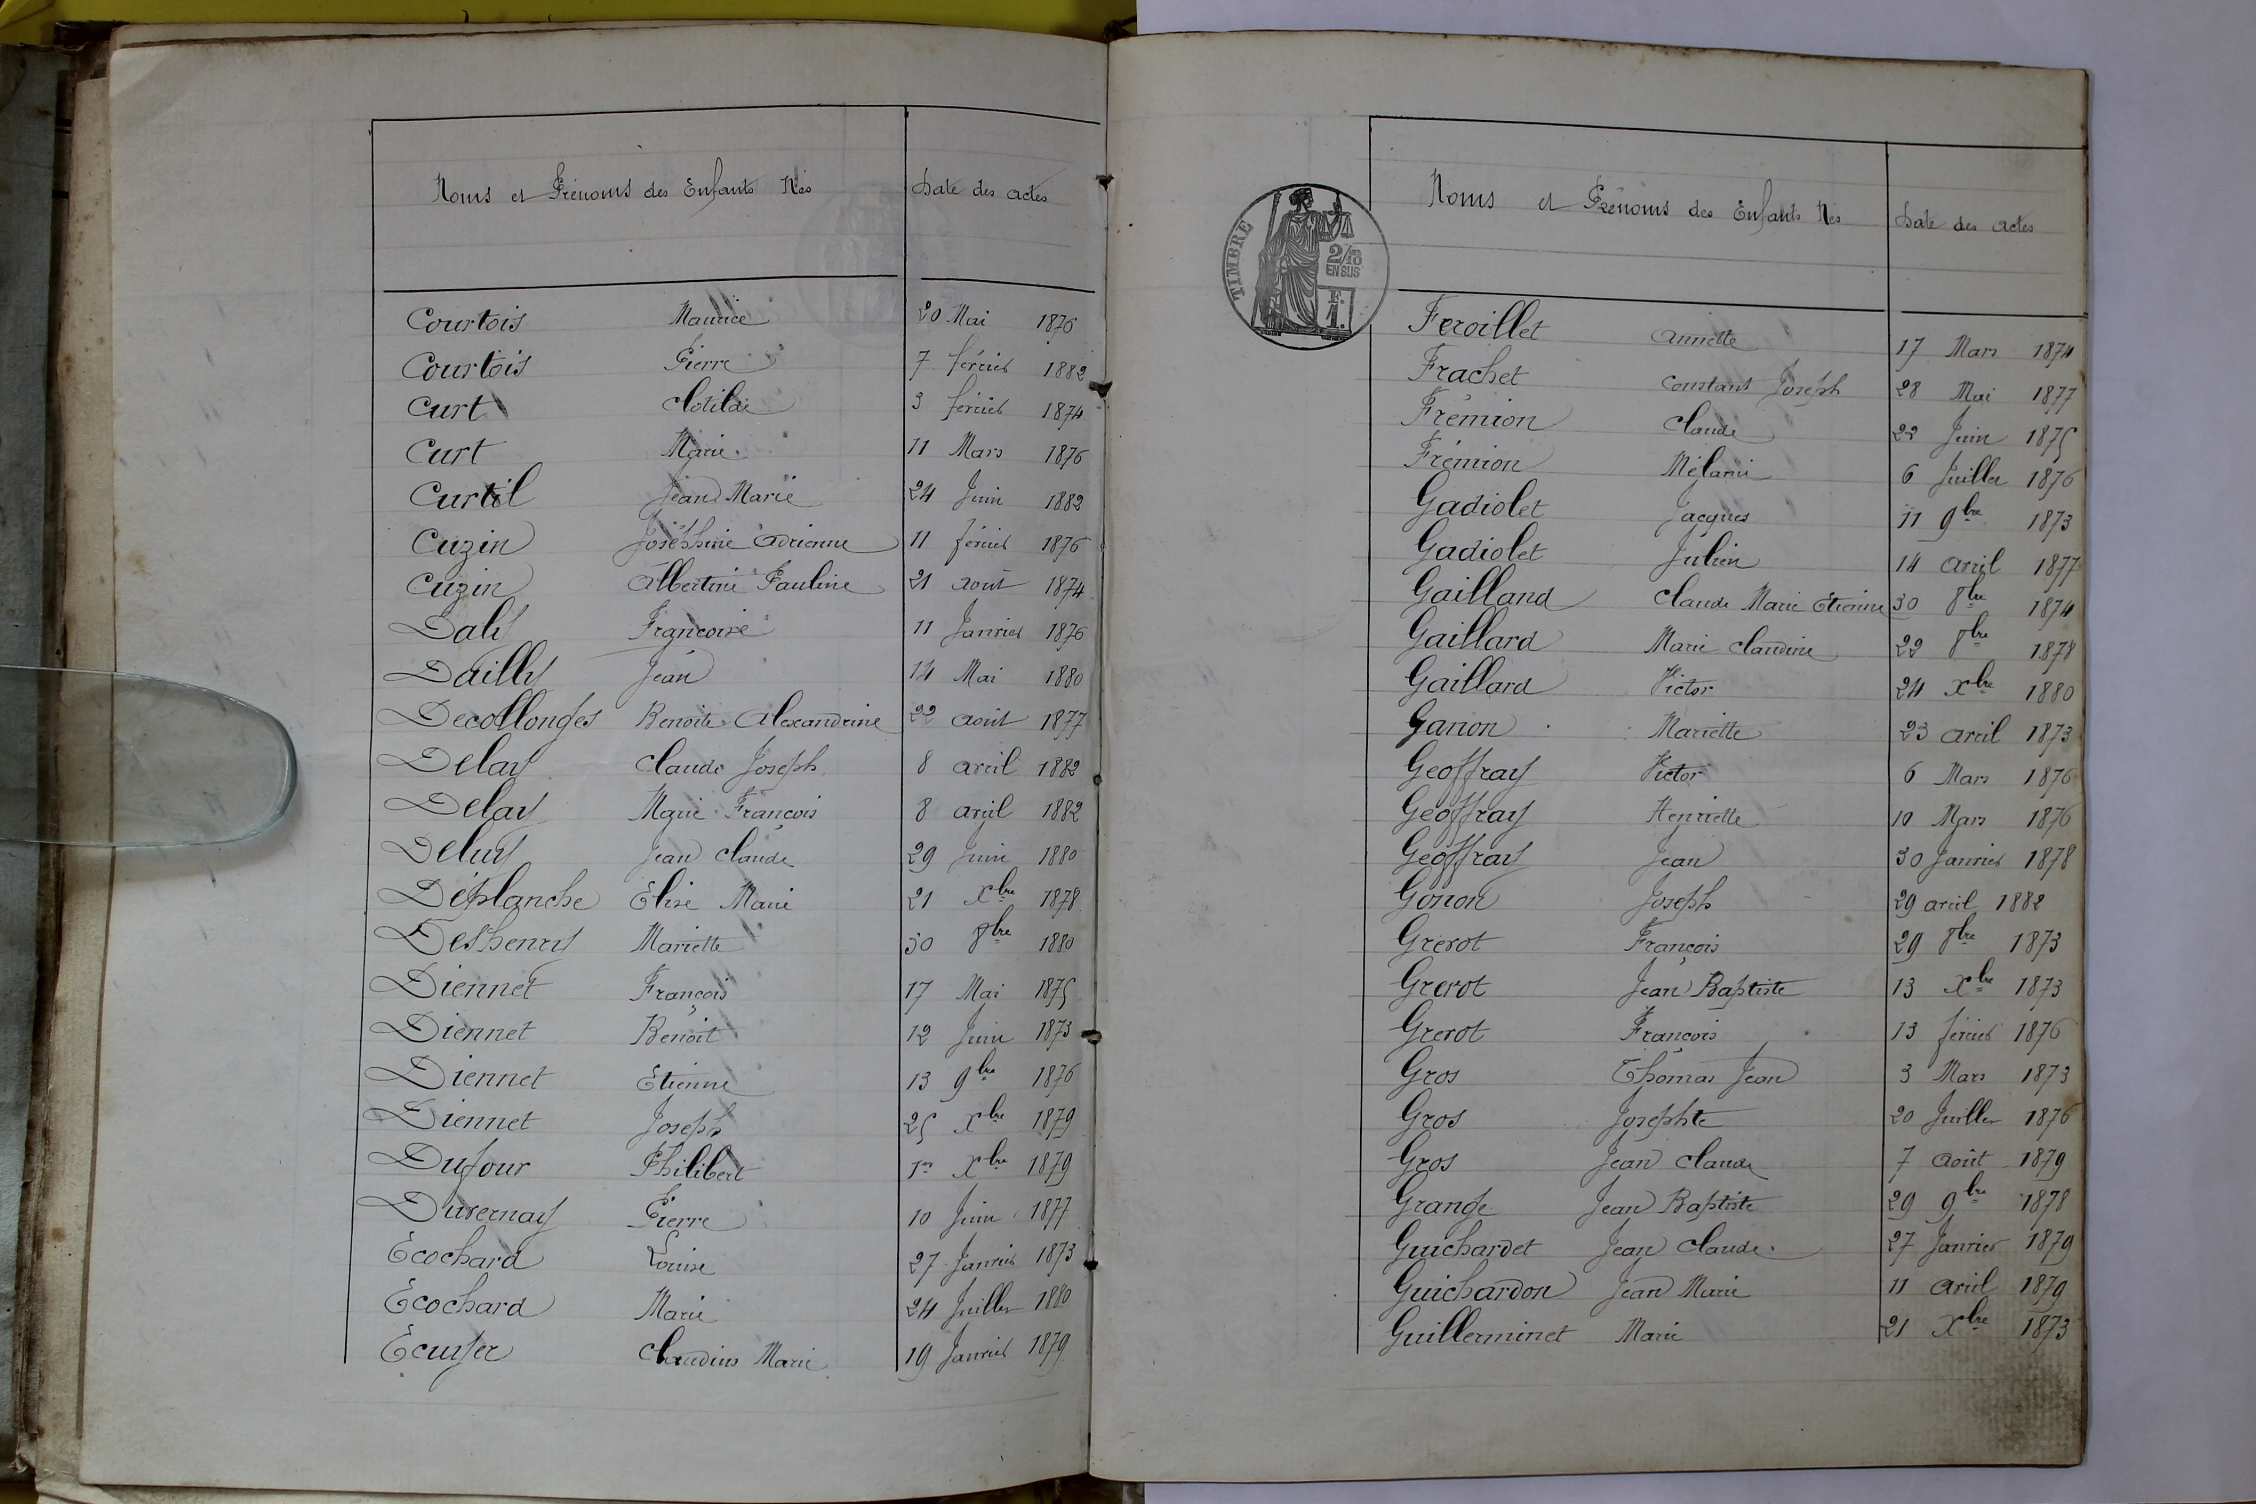 Noms et Prénoms des Enfants Nés Date des actes
Courtois Maurice 20 Mai 1876
Courtois Pierre 7 février 1882
Curt Clotilde 3 février 1874
Curt Marie 11 Mars 1876
Curtil Jean Marie 24 Juin 1882
Cuzin Joséphine Adrienne 11 février 1876
Cuzin Albertine Pauline 21 août 1874
Daly Françoise 11 Janvier 1876
Dailly Jean 14 Mai 1880
Decollonges Benoite Alexandrine 22 août 1877
Delay Claude Joseph 8 avril 1882
Delay Marie François 8 avril 1882
Deluy Jean Claude 29 Juin 1880
Déplanche Elise Marie 21 Xbre 1878
Deshenry Mariette 30 8bre 1880
Diennet François 17 Mai 1875
Diennet Benoit 12 Juin 1873
Diennet Etienne 13 9bre 1876
Diennet Joseph 25 Xbre 1879
Dufour Philibert 1er Xbre 1879
Duvernay Pierre 10 Juin 1877
Ecochard Louise 27 Janvier 1873
Ecochard Marie 24 Juillet 1880
Ecuyer Claudius Marie 19 Janvier 1879
TIMBRE
2/10
EN SUS
F.
1.
Noms et Prénoms des Enfants Nés Date des actes
Feroillet Annette 17 Mars 1874
Frachet Constant Joseph 28 Mai 1877
Frémion Claude 22 Juin 1875
Frémion Mélanie 6 Juillet 1876
Gadiolet Jacques 11 9bre 1873
Gadiolet Julien 14 avril 1877
Gailland Claude Marie Etienne 30 8bre 1874
Gaillard Marie Claudine 22 8bre 1878
Gaillard Victor 24 Xbre 1880
Ganon Mariette 23 avril 1873
Geoffray Victor 6 Mars 1876
Geoffray Henriette 10 Mars 1876
Geoffray Jean 30 Janvier 1878
Gonon Joseph 29 avril 1882
Grerot François 29 8bre 1873
Grerot Jean Baptiste 13 Xbre 1873
Grerot François 13 février 1876
Gros Thomas Jean 3 Mars 1873
Gros Josephte 20 Juillet 1876
Gros Jean Claude 7 août 1879
Grange Jean Baptiste 29 9bre 1878
Guichardet Jean Claude 27 Janvier 1879
Guichardon Jean Marie 11 avril 1879
Guillerminet Marie 21 Xbre 1873